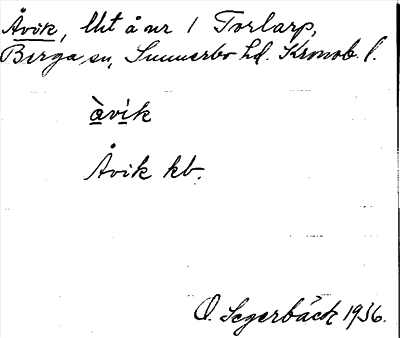 Åvik, lht å nr 1 Torlarp,
Berga sn, Sunnerbo hd. Kronob. l.
àvik
Åvik kb.
O. Segerbäck 1936.